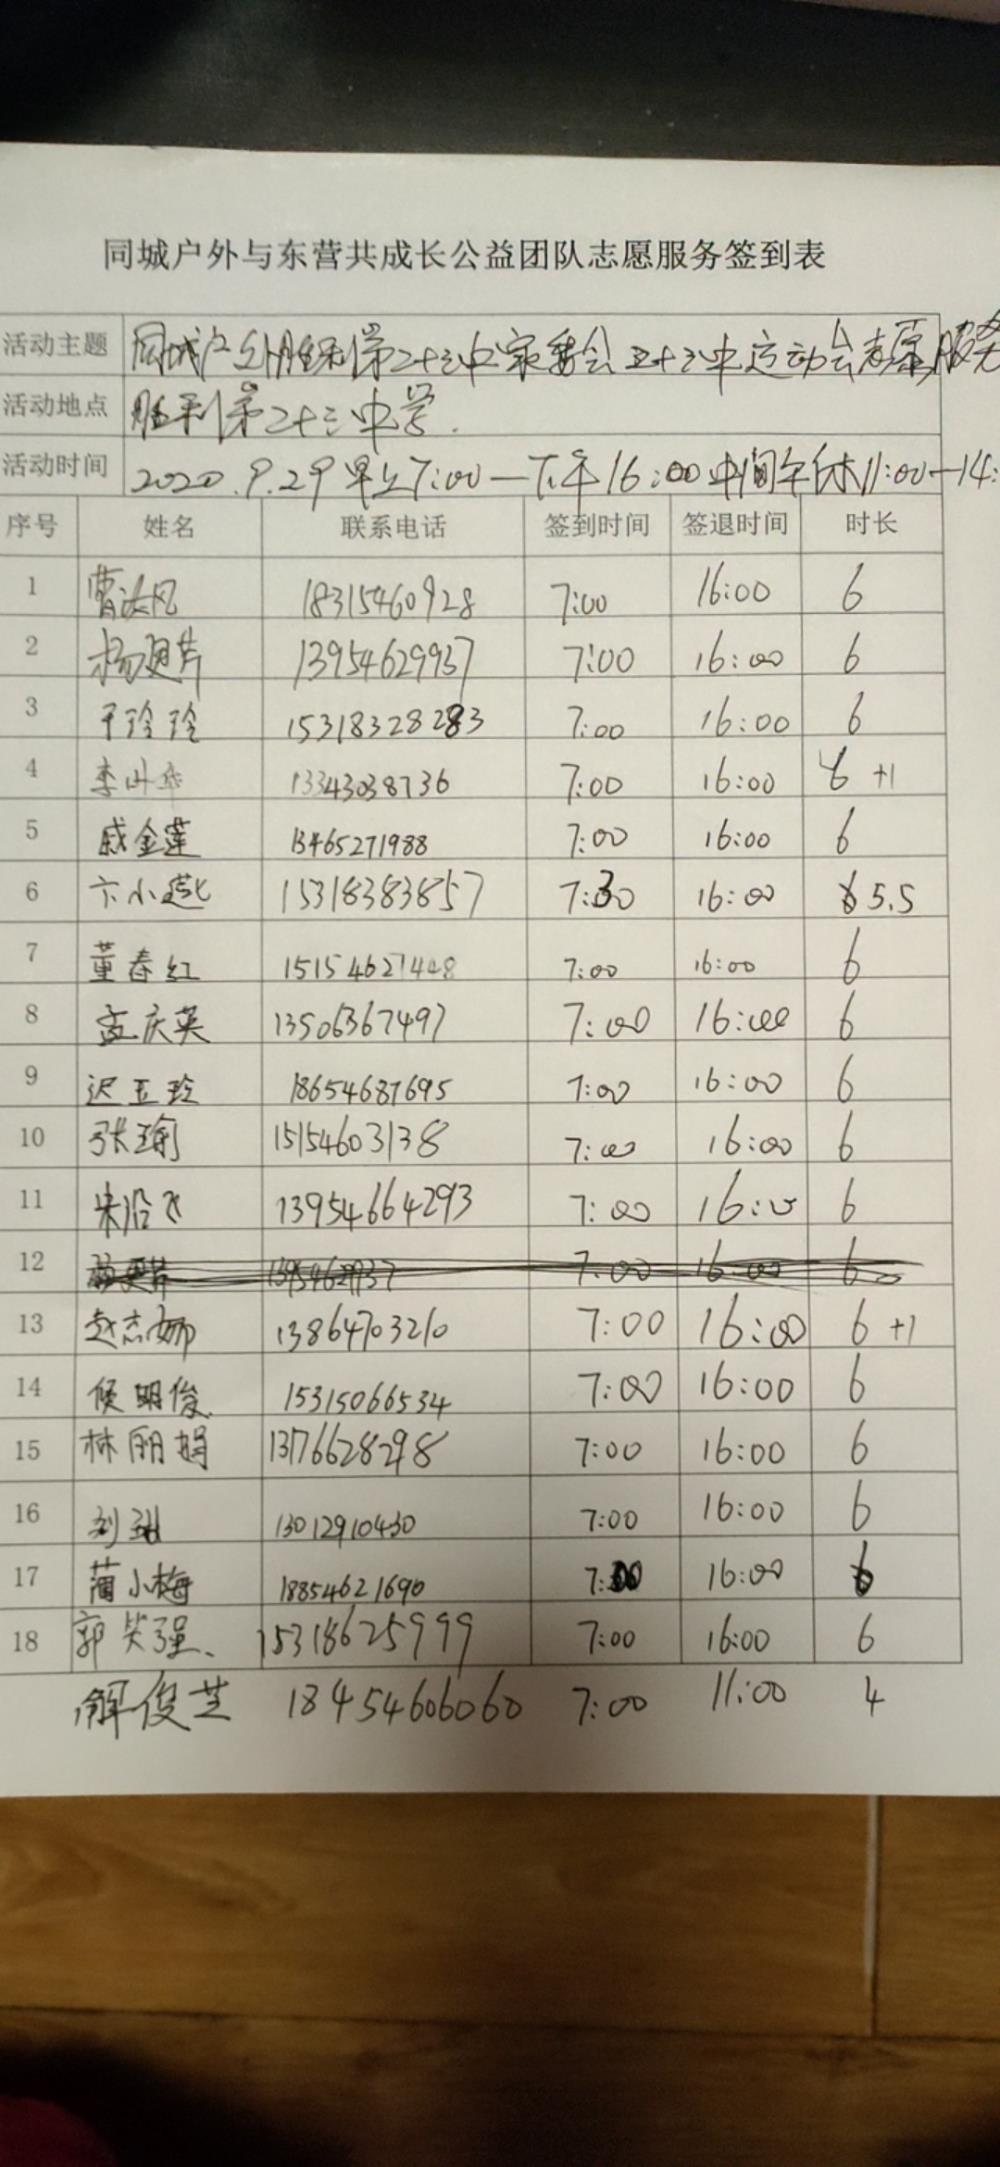 同城户外与东营共成长公益团队志愿服务签到表
活动主题 同城户外胜利第二十三中家委会 二十三中运动会志愿服务
活动地点 胜利第二十三中学.
活动时间 2020.9.29早上7:00—下午16:00中间午休11:00—14:
序号 姓名 联系电话 签到时间 签退时间 时长
1 曹 18315460928 7:00 16:00 6
2 杨 13954629937 7:00 16:00 6
3 于玲玲 15318328283 7:00 16:00 6
4 李叶华 13343038736 7:00 16:00 6 +1
5 戚金莲 13465271988 7:00 16:00 6
6 卞小燕 15318383857 7:30 16:00 5.5
7 董春红 15154627448 7:00 16:00 6
8 孟庆英 13506367497 7:00 16:00 6
9 迟玉玲 18654687695 7:00 16:00 6
10 张瑜 15154603138 7:00 16:00 6
11 宋沿飞 13954664293 7:00 16:00 6
12 13954629937 7:00 16:00 6
13 赵志娜 13864703210 7:00 16:00 6 +1
14 侯明俊 15315066534 7:00 16:00 6
15 林丽娟 13176628298 7:00 16:00 6
16 刘 13012910430 7:00 16:00 6
17 蒲小梅 18854621690 7:00 16:00 6
18 郭笑强、 15318625999 7:00 16:00 6
解俊芝 18454606060 7:00 11:00 4